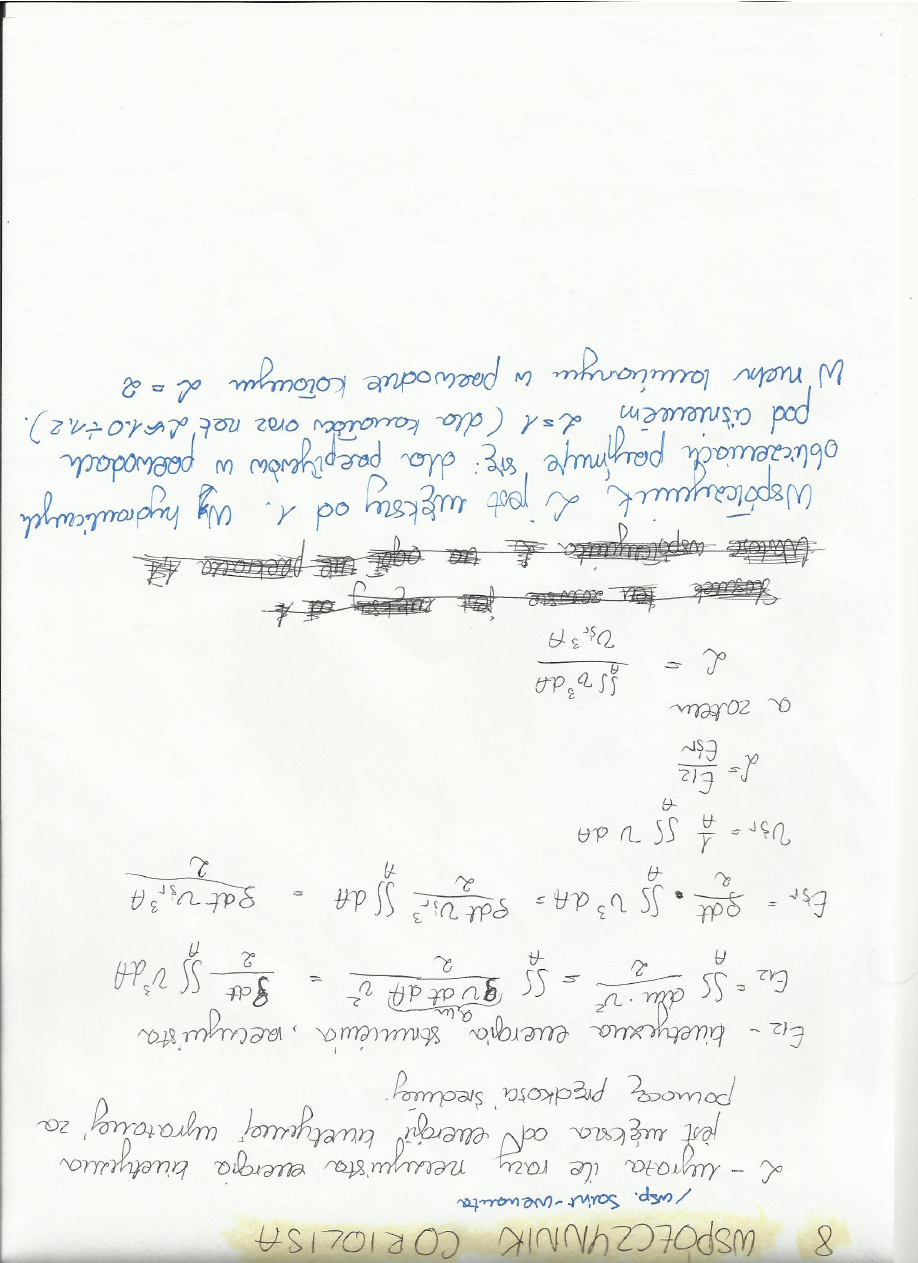 8 WSPÓŁCZYNNIK CORIOLISA
/wsp. Saint-Venanta
α - wyraża ile razy rzeczywista energia kinetyczna
jest większa od energii kinetycznej wyrażonej za
pomocą prędkości średniej.
E12 - kinetyczna energia strumienia, rzeczywista
E12 = ∬_A dm · v² / 2 = ∬_A ρv dt dA v² / 2 = ρdt / 2 ∬_A v³ dA
Eśr = ρdt / 2 · ∬_A v³ dA = ρdt vśr³ / 2 ∬_A dA = ρdt vśr³ A / 2
vśr = 1/A ∬_A v dA
α = E12 / Eśr
a zatem
α = ∬_A v³ dA / vśr³ A
Stosunek ten zawsze jest większy od 1
Wartość współczynnika
Współczynnik α jest większy od 1. W hydraulicznych
obliczeniach przyjmuje się: dla przepływów w przewodach
pod ciśnieniem α = 1 (dla kanałów oraz rzek α ≈ 1.0 ÷ 1.2).
W ruchu laminarnym w przewodzie kołowym α = 2